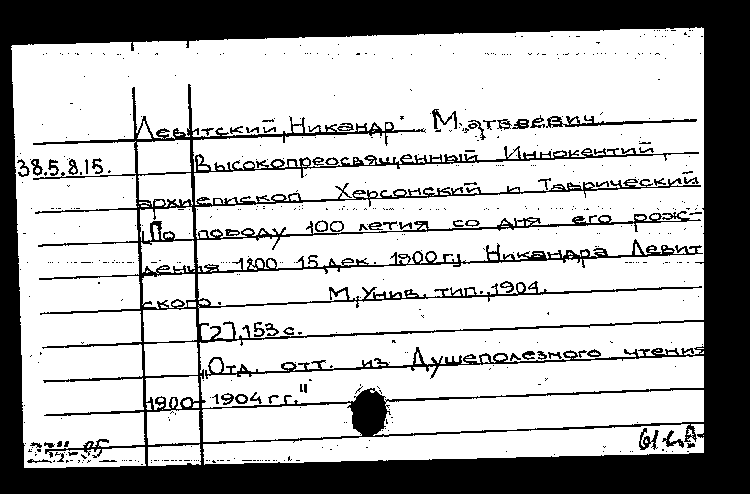 Левитский, Никандр Матвеевич.
38.5.8.15. Высокопреосвященный Иннокентий,
архиепископ Херсонский и Таврический
[По поводу 100 летия со дня его рож-
дения 1800 15, дек. 1900 г]. Никандра Левит
ского. М., Унив. тип., 1904.
[2], 153 с.
"Отд. отт. из Душеполезного чтения
1900-1904 г.г."